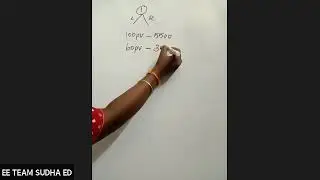 1
L R
100pv - 5500
60pv - 3
EE TEAM SUDHA ED